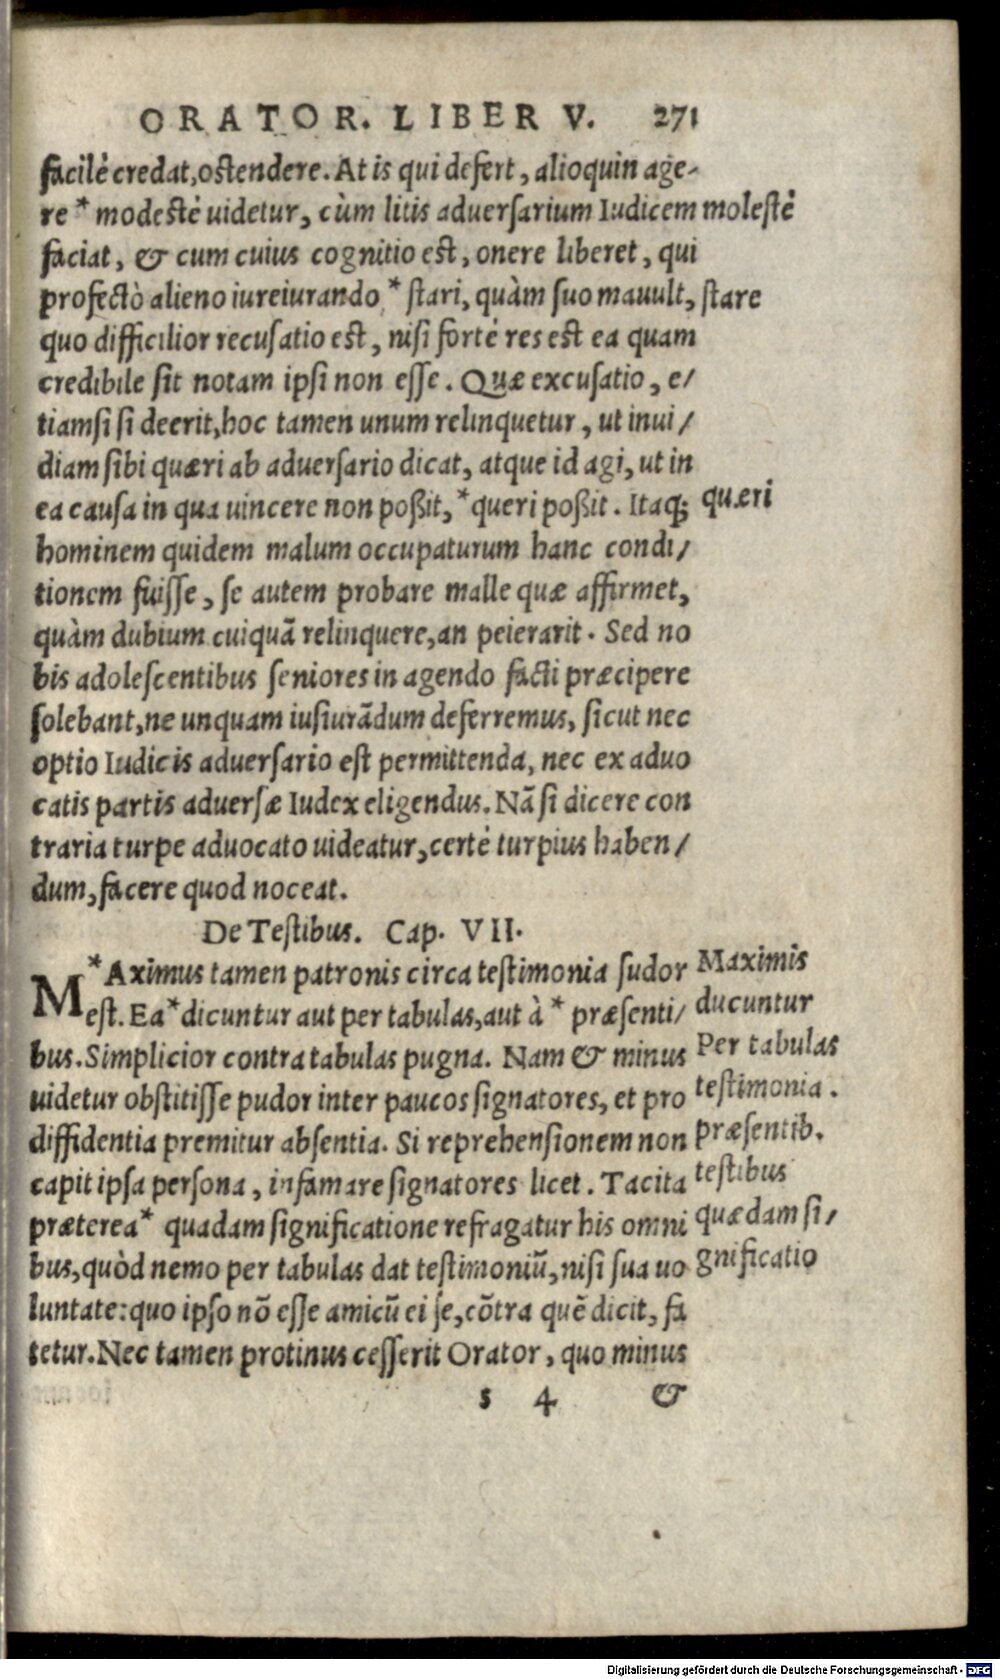 ORATOR. LIBER V. 271
facilè credat, ostendere. At is qui defert, alioquin age-
re * modestè uidetur, cùm litis aduersarium Iudicem molestè
faciat, & cum cuius cognitio est, onere liberet, qui
profectò alieno iureiurando * stari, quàm suo mauult, stare
quo difficilior recusatio est, nisi fortè res est ea quam
credibile sit notam ipsi non esse. Quæ excusatio, e/
tiamsi si deerit, hoc tamen unum relinquetur, ut inui/
diam sibi quæri ab aduersario dicat, atque id agi, ut in
ea causa in qua uincere non poßit, * queri poßit. Itaq; quæri
hominem quidem malum occupaturum hanc condi/
tionem fuisse, se autem probare malle quæ affirmet,
quàm dubium cuiquā relinquere, an peierarit. Sed no
bis adolescentibus seniores in agendo facti præcipere
solebant, ne unquam iusiurādum deferremus, sicut nec
optio Iudicis aduersario est permittenda, nec ex aduo
catis partis aduersæ Iudex eligendus. Nā si dicere con
traria turpe aduocato uideatur, certè turpius haben/
dum, facere quod noceat.
De Testibus. Cap. VII.
M*Aximus tamen patronis circa testimonia sudor Maximis
est. Ea * dicuntur aut per tabulas, aut à * præsenti/ ducuntur
bus. Simplicior contra tabulas pugna. Nam & minus Per tabulas
uidetur obstitisse pudor inter paucos signatores, et pro testimonia.
diffidentia premitur absentia. Si reprehensionem non præsentib.
capit ipsa persona, infamare signatores licet. Tacita testibus
præterea * quadam significatione refragatur his omni quædam si/
bus, quòd nemo per tabulas dat testimoniū, nisi sua uo gnificatio
luntate: quo ipso nō esse amicū ei se, cōtra quē dicit, fa
tetur. Nec tamen protinus cesserit Orator, quo minus
s 4 &
Digitalisierung gefördert durch die Deutsche Forschungsgemeinschaft - DFG